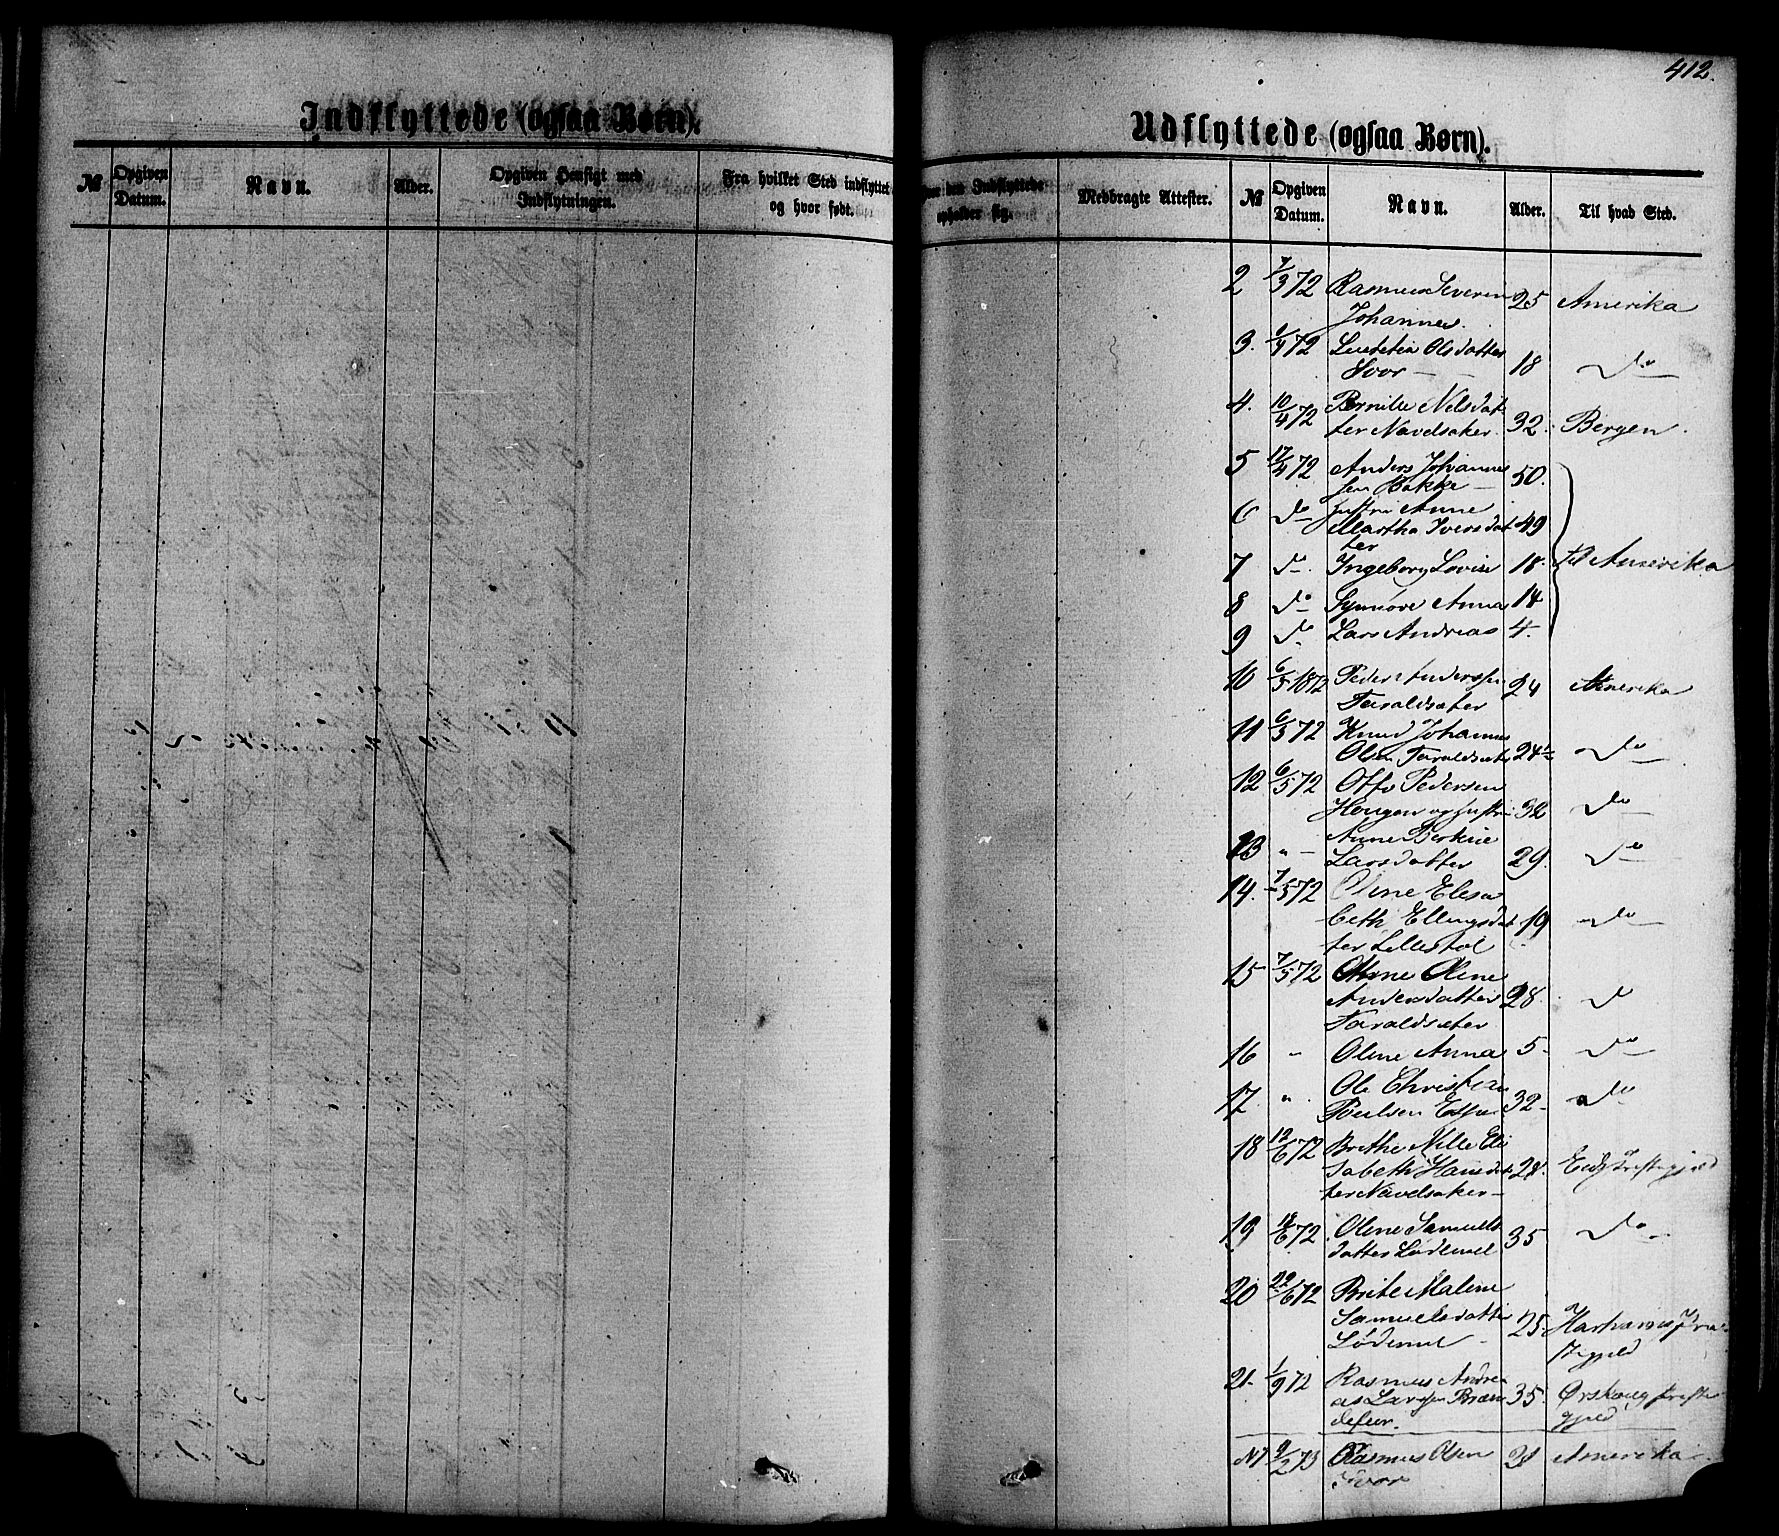 412.
Indflyttede (ogsaa Børn).
№ Opgiven Datum. Navn. Alder. Opgiven Hensigt med Indflytningen. Fra hvilket Sted indflyttet og hvor født.
Udflyttede (ogsaa Børn).
den Indflyttede opholder sig. Medbragte Attester. № Opgiven Datum. Navn. Alder. Til hvad Sted.
2 7/3 72 Rasmus Severin 25 Amerika
Johannes.
3. 9/4 72 Olsdatter
18 do
4. 10/4 72 Pernille Nelsdat
ter Navelsaker 32. Bergen.
5 17/4 72 Anders Johannes
sen Bakke 50.
6 do Hustru Anne
Martha Iversdat 49
ter
7 do Ingeborg Lovise 18. til Amerika
8 do Synnøve Anna 14
9 do Lars Andreas 4.
10 6/5 1872 Peder Anderssen 24 Amerika
Taraldsæter
11 6/5 72 Knud Johannes
Olsen Taraldsæter 24½ do
12 6/5 72 Otto Pedersen
Hougen og hustru 32 do
13 " Anne Berthine
Larsdatter 29. do
14. 7/5 72 Oline Elesa
beth Ellingsdat 19 do
ter Lillestøl
15 7/5 72 Oline
Andersdatter 28. do
Taraldsæter
16 " Oline Anna 5 do
17 " Ole Christian
32 do
18 12/6 72 Brithe Nille Eli
sabeth Hansdat 28. Eids Præstegjæld
ter Navelsaker
19 18/6 72 Oline Samuels
datter Lødemel 35 do
20 22/6 72 Brite Maline
Samuelsdatter 25 Harhams Præ
Lødemel stegjeld
21. 1/9 72 Rasmus Andre
as Larsen 35. Ørskoug Præste
gjeld
N1 9/2 73 Rasmus Olsen 21 Amerika